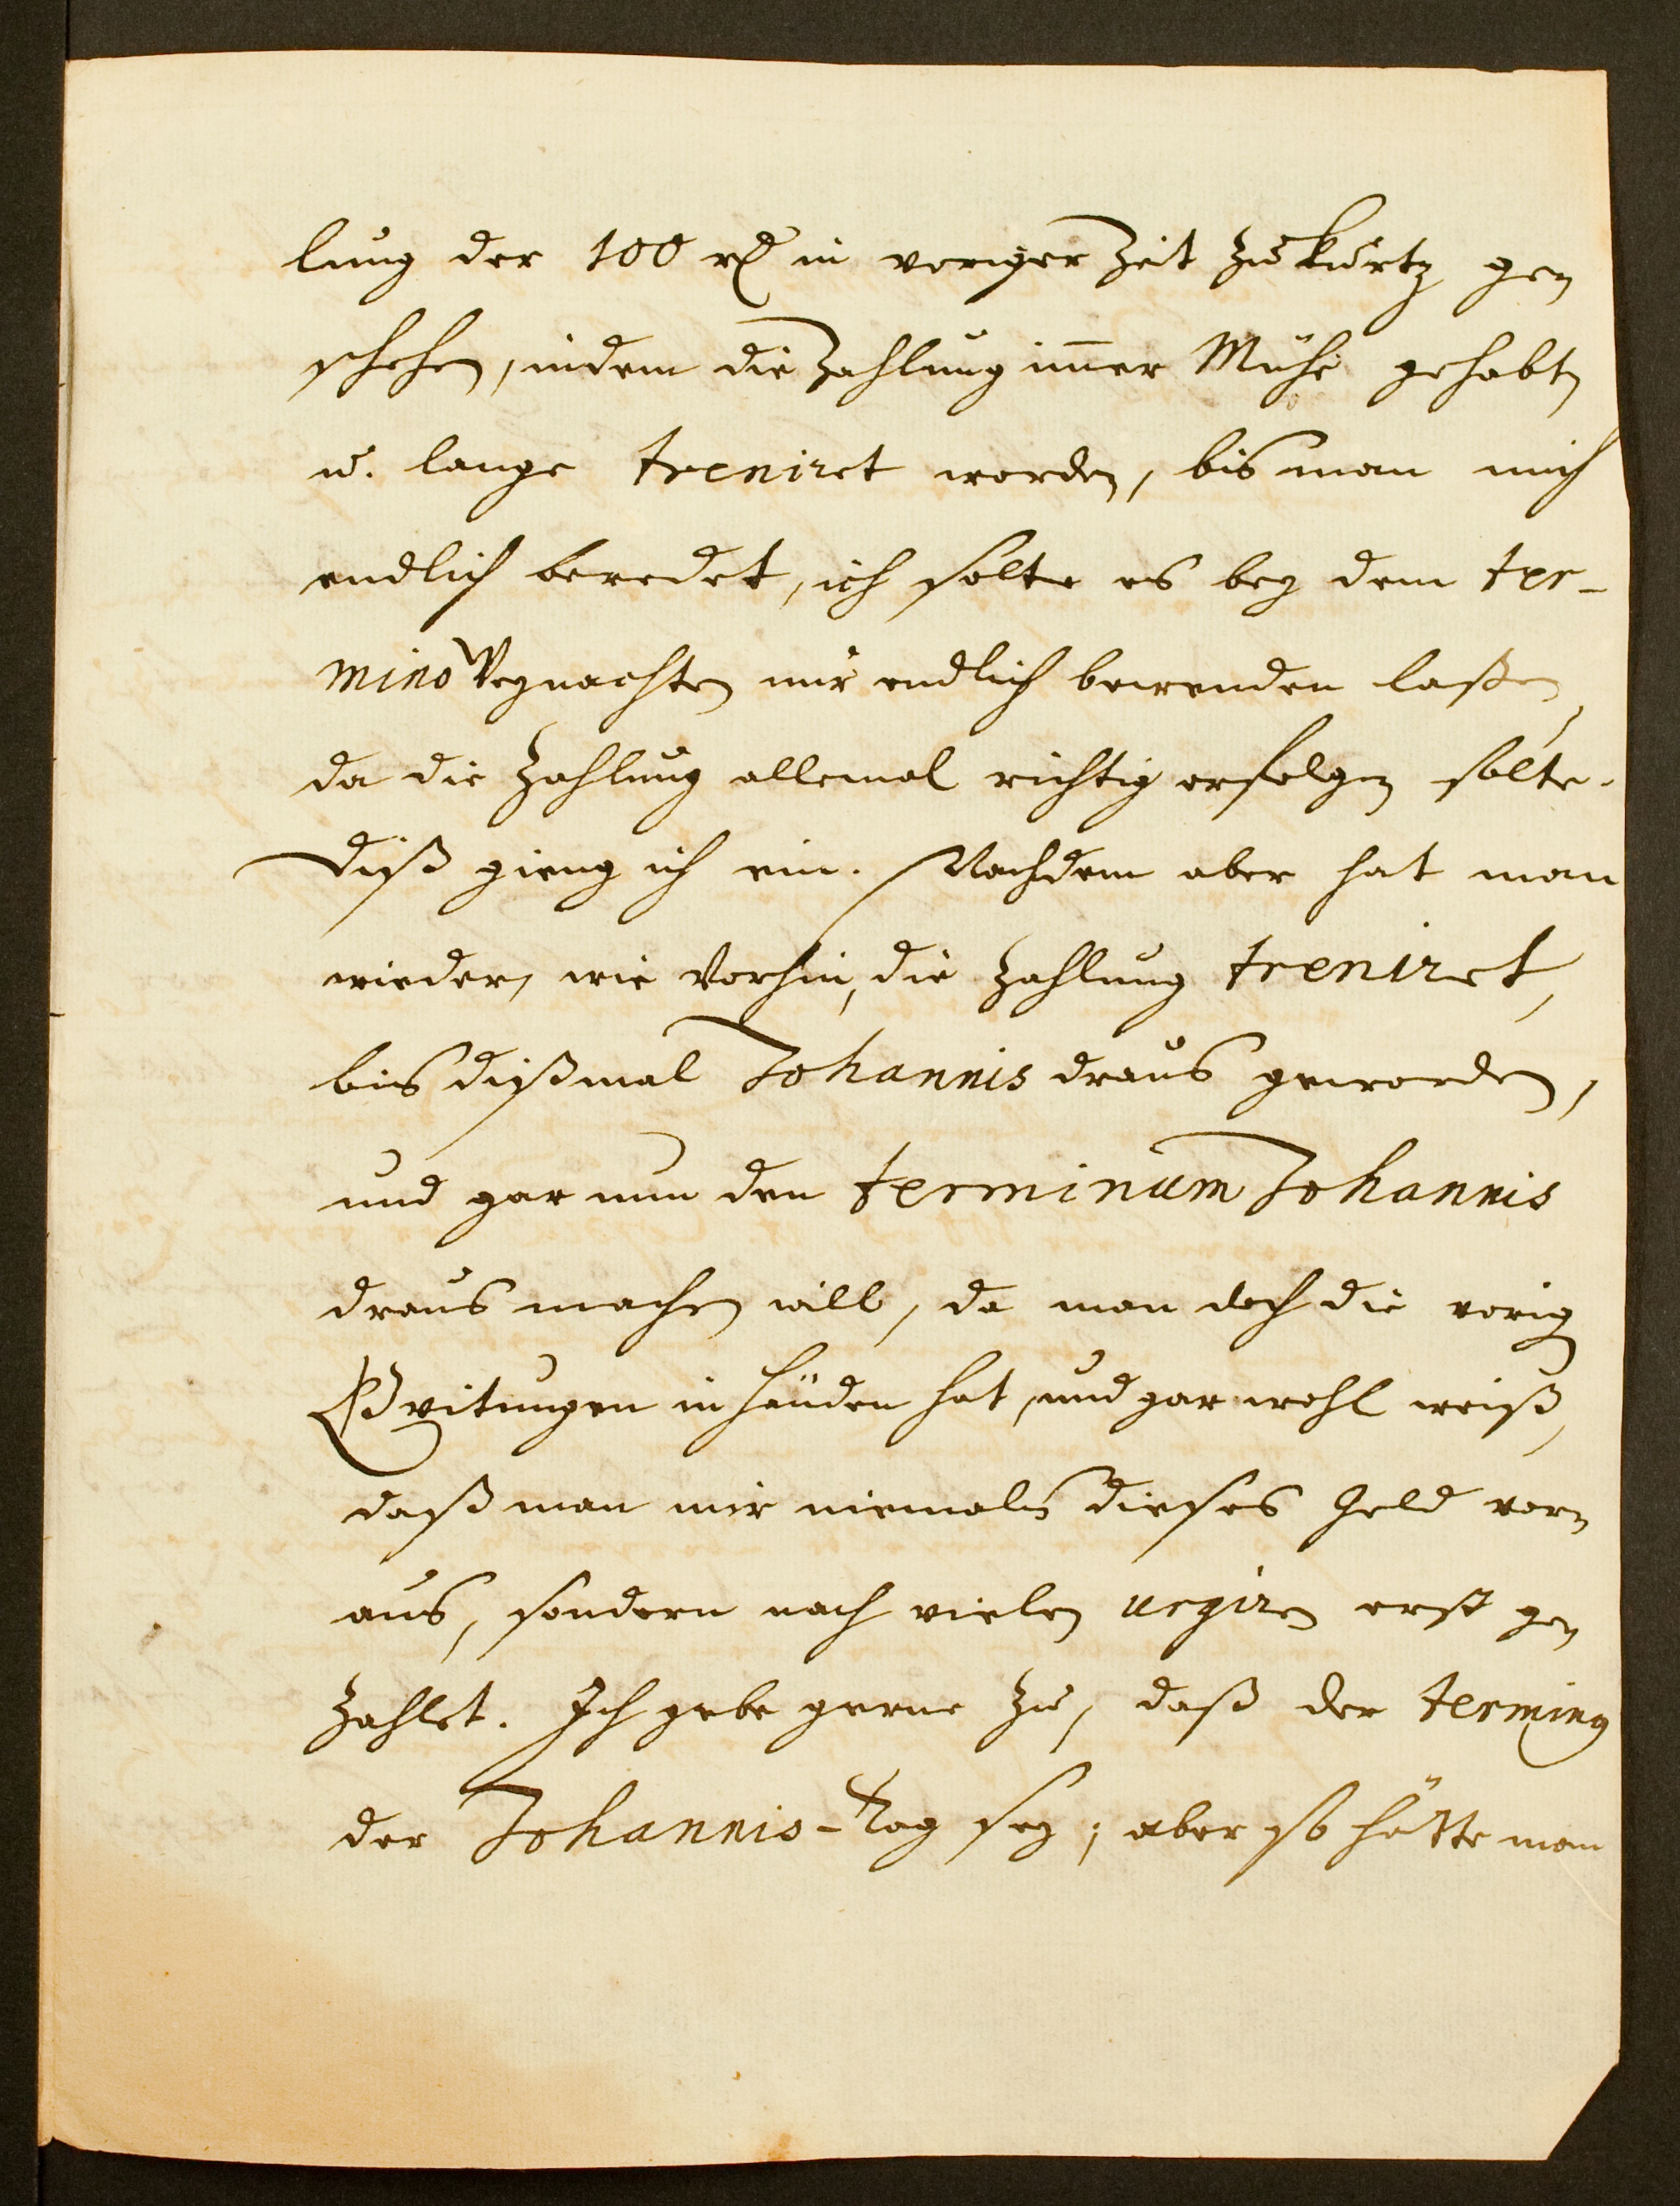 lung der 100 rl in voriger Zeit zu kurtz ge-
schehen, indem die Zahlung im̅er Mühe gehabt
u. lange treniret worden, bis man mich
endlich beredet, ich solte es bey dem ter-
mino Weynachten nur endlich bewenden laßen,
da die Zahlung allemal richtig erfolgen solte.
Diß gieng ich ein. Nachdem aber hat man
wieder, wie vorhin, die Zahlung treniret,
bis dißmal Johannis draus geworden,
und gar nun den terminum Johannis
draus machen will, da man doch die vorigen
Qvitungen in Händen hat, und gar wohl weiß,
daß man mir niemals dieses Geld vor-
aus, sondern nach vielen urgiren erst ge-
zahlet. Ich gebe gerne zu, daß der terminus
der Johannis-Tag sey; aber so hätte man